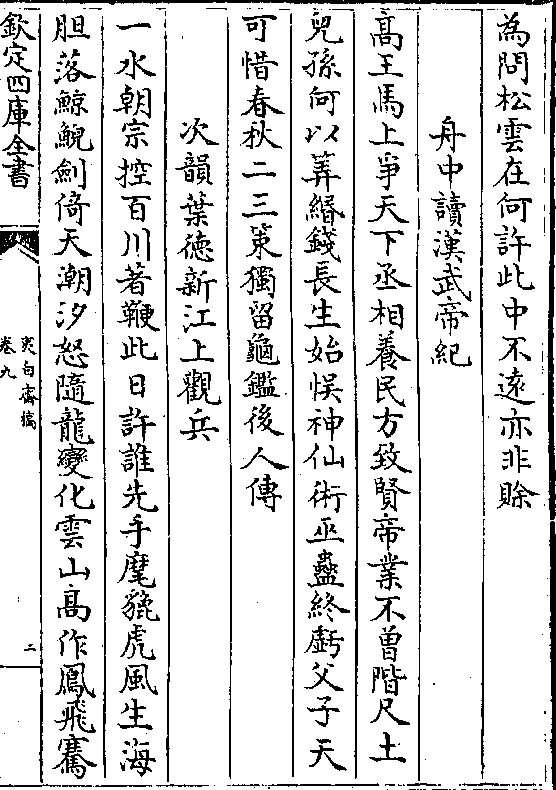 為問松雲在何許此中不遠亦非賖
舟中讀漢武帝紀
高王馬上爭天下丞相養民方致賢帝業不曽階尺土
兒孫何以筭緡錢長生始悞神仙術巫蠱終虧父子天
可惜春秋二三策獨留龜鑑後人傳
次韻葉德新江上觀兵
一水朝宗控百川著鞭此日許誰先手麾貔虎風生海
胆落鯨鯢劍倚天潮汐怒隨龍變化雲山高作鳳飛騫
欽定四庫全書
夷白齋稿
卷九
二